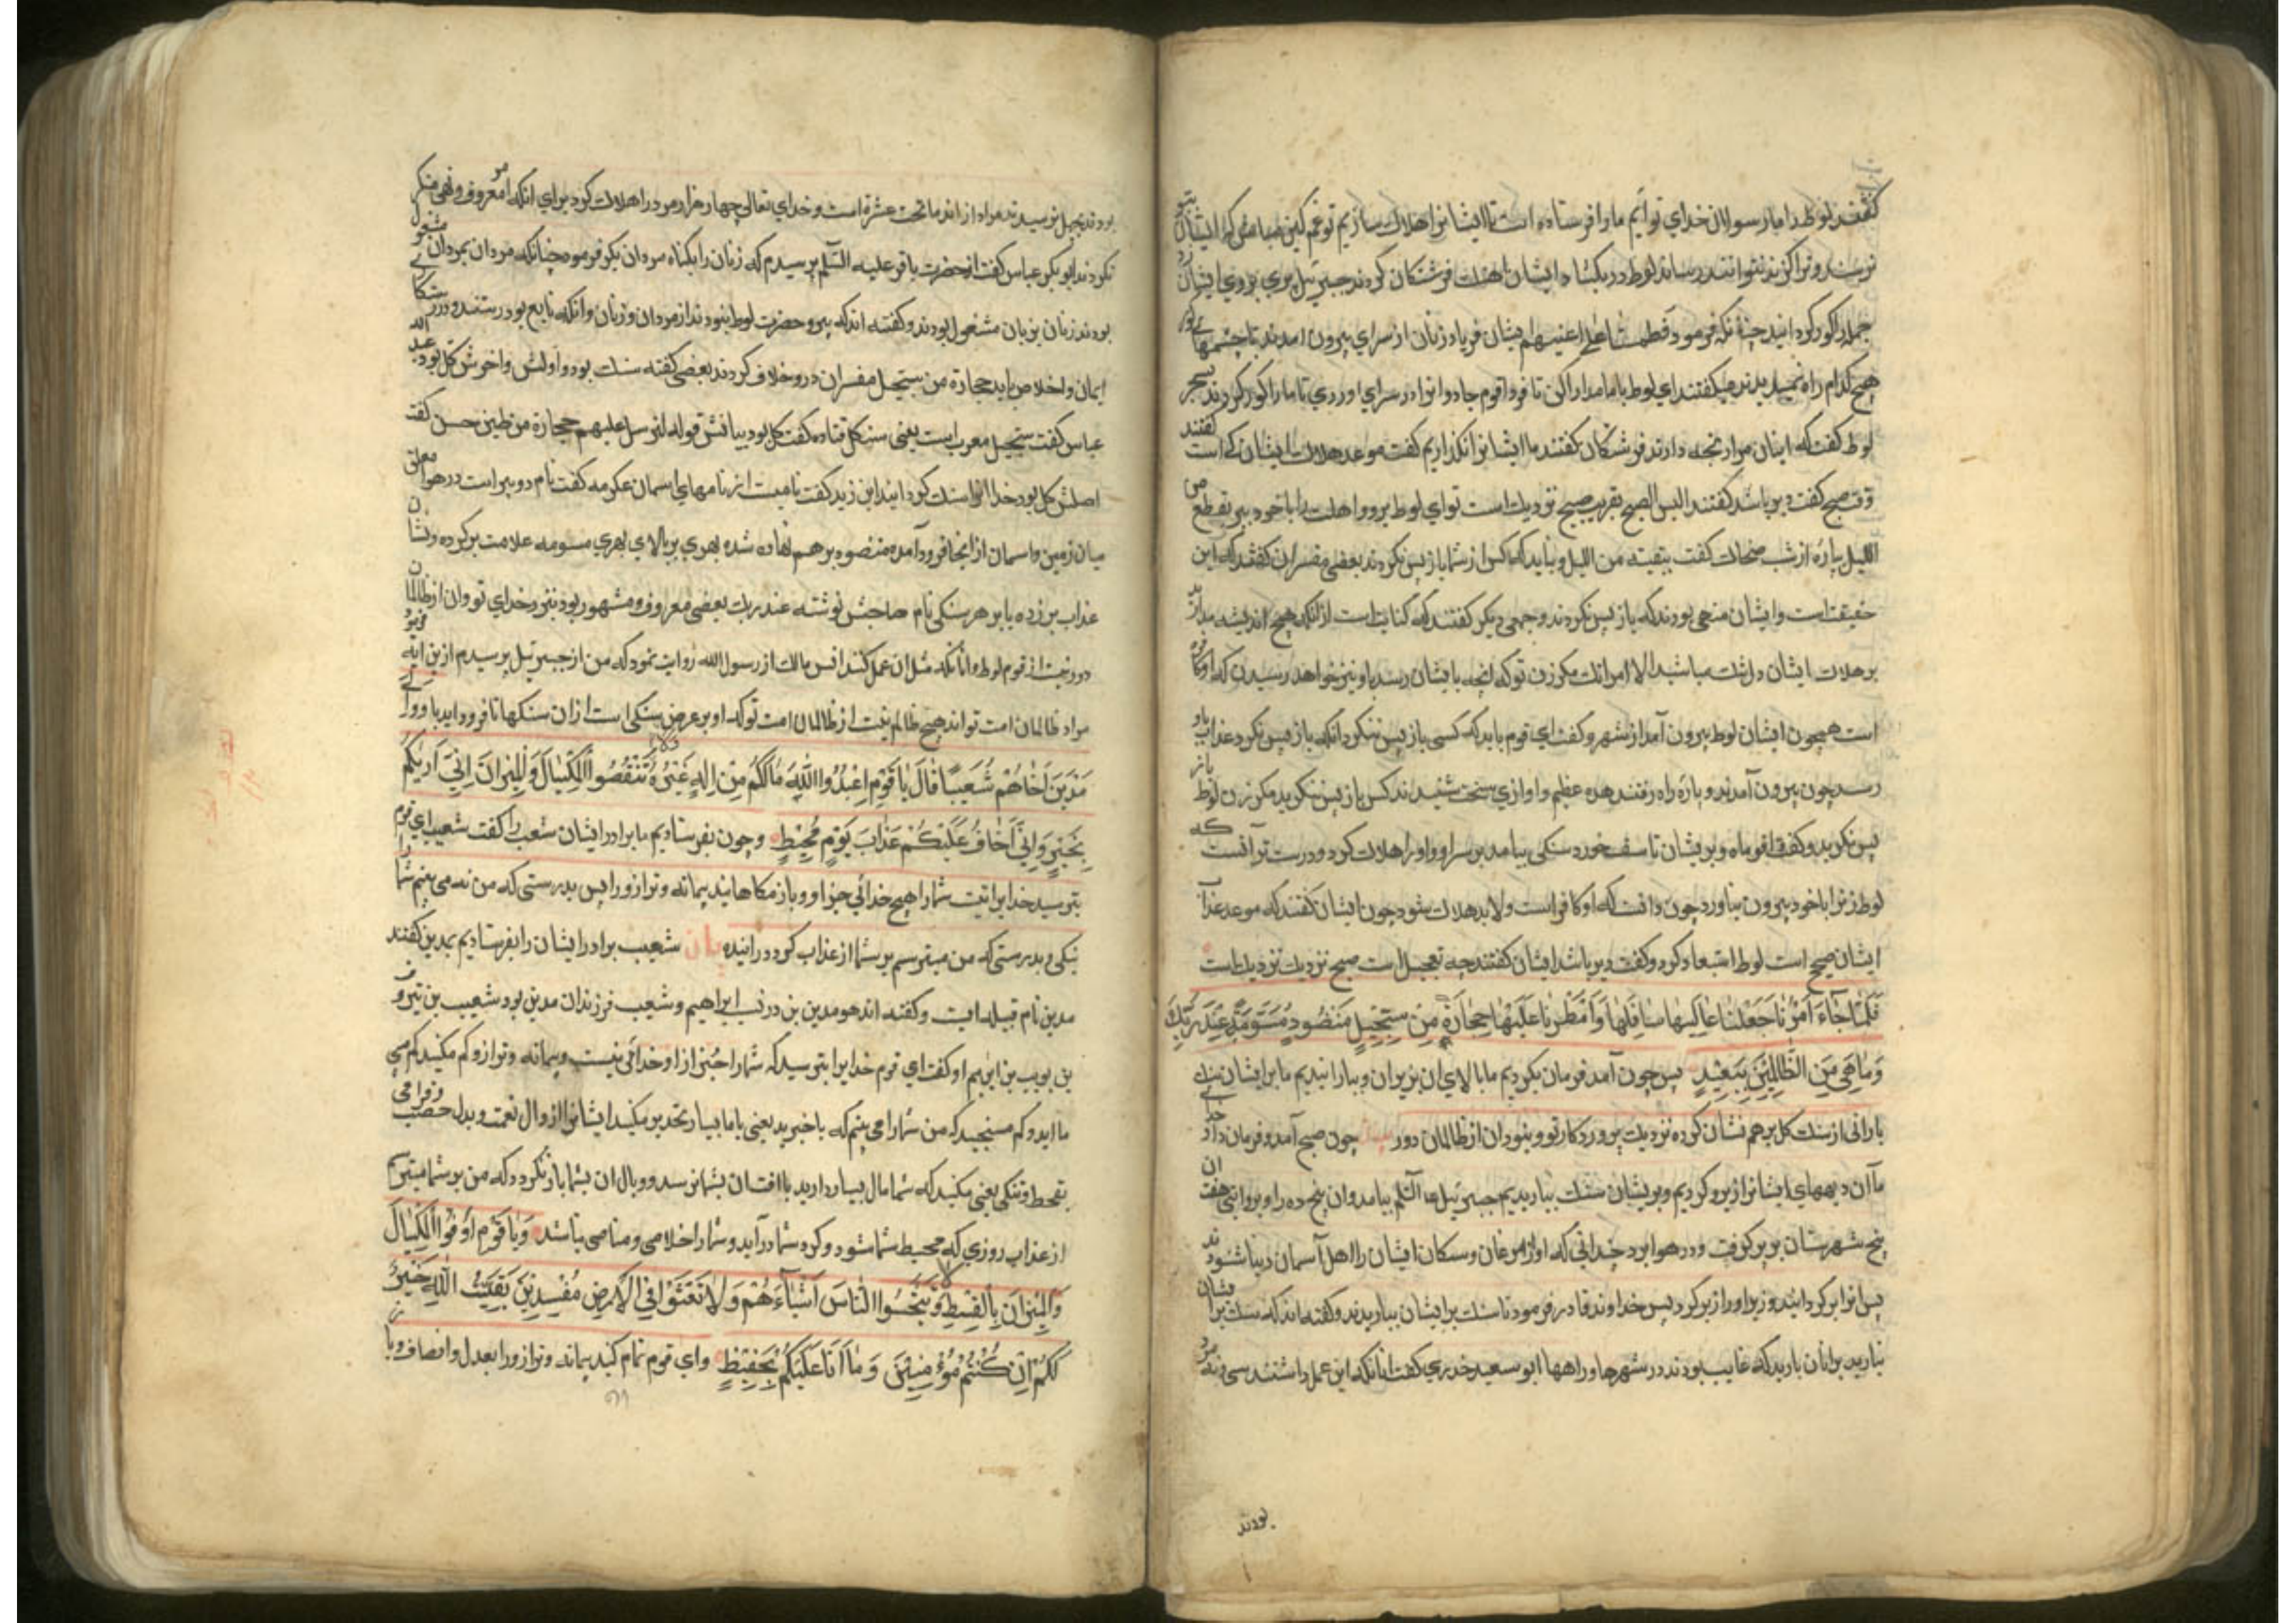 گفتند لوط را ما رسولان خدای توایم ما را فرستاده است تا ایشانرا هلاک سازیم تو غمگین مباش که ایشان بتو
نرسند و ترا گزند نتوانند رساند لوط در بگشا د ایشان فرشتگان کردند جبرئیل پری بر روی ایشان زد
جمله را کور کردانید چنانکه فرمود فطمسنا علی اعینهم ایشان فریاد زنان از سرای بیرون امدند با چشمهای کور
هیچ کدام راه نمیدیدند میکفتند ای لوط باما مدارا کن تا فردا قوم جادوانرا در سرای اوردی تا ما را کور کردند بسحر
لوط کفت که اینان مرا رنجه دارند فرشتکان کفتند ما ایشانرا نکذاریم کفت موعد هلاک ایشان کی است کفتند
وقت صبح کفت دیر باشد کفتند الیس الصبح بقریب صبح نزدیک است تو ای لوط برو و اهلت را با خود ببر بقطع من
اللیل پارهٔ از شب ضحاک کفت ببقیته من اللیل و باید که کس از شما باز پس نکردند بعضی مفسران کفتند که این
حقیقت است و ایشان منهی بودند که باز پس نکردند و جمعی دیکر کفتند که کنایت است از انکه هیچ اندیشه مدارید
بر هلاک ایشان دل مباشید الا امراتک مکر زن تو که انچه بایشان رسد باو نیز خواهد رسیدن که او کافره
است همچون ایشان لوط بیرون آمد از شهر و کفت ای قوم باید که کسی باز پس ننکرد انکه باز پس نکرد عذاب باو
رسد چون بیرون آمدند و پاره راه رفتند هده عظیم و اوازی سخت شنیدند کس باز پس ننکرید مکر زن لوط باز
پس نکرید و کفت اقوماه و بریشان تاسف خورد سنکی بیامد بر سر او و او را هلاک کرد و درست تر آنست که
لوط زنرا با خود بیرون نیاورد چون دانست که او کافر است و لابد هلاک شود چون ایشان کفتند که موعد عذاب
ایشان صبح است لوط استبعاد کرد و کفت دیر باشد ایشان کفتند چه تعجیل است صبح نزدیک نزدیک است
فَلَمّا جآءَ اَمْرُنا جَعَلْنا عالِیَها سافِلَها وَاَمْطَرْنا عَلَیْها حِجارَةً مِنْ سِجّیلٍ مَنْضُودٍ مُسَوَّمَةً عِنْدَ رَبِّکَ
وَما هِیَ مِنَ الظّالِمینَ بِبَعیدٍ پس چون آمد فرمان بکردیم ما بالای ان بزیران و ببارانیدیم ما بر ایشان سنک
بارانی از سنک کل بر هم نشان کرده نزدیک پروردکار تو و نبود ان از ظالمان دور چون صبح آمد و فرمان داد خدای
ما آن دیههای ایشانرا زیر و کردیم و بریشان سنک بباریدیم جبرئیل بیامد و ان پنج ده را و بروایتی هفت
پنج شهرستان بر پر کرفت و در هوا برد چندانی که اواز مرغان و سکان ایشان را اهل آسمان دنیا شنودند
پس انرا بر کردانید و زیر او را زبر کرد پس خداوند قادر فرمود تا سنک بر ایشان بباریدند و کفته اند که سنک بر ایشان
نبارید برانان بارید که غایب بودند در شهرها و راهها ابو سعید خدری کفت انانکه این عمل داشتند سی و نه مرد
بودند
بودند بچهل نرسیدند مراد از اند ما تحت عشرة است و خدای تعالی چهار هزار مرد را هلاک کرد برای انکه امر معروف و نهی منکر
نکردند ابو بکر عباس کفت از حضرت باقر علیه السلم پرسیدم که زنان را بکناه مردان بکرفت فرمود چنانکه مردان بمردان مشغول
بودند زنان بزنان مشغول بودند و کفته اند که پیرو حضرت لوط نبودند از مردان و زنان و انکه تابع بود رستند و در
ایمان و اخلاص باید حجارة من سجیل مفسران درو خلاف کردند بعضی کفته سنک بود و اولش و اخرش کل بود عبد الله
عباس کفت سجیل معرب است یعنی سنک کل قتاده کفت کل بود بیانش قوله لنرسل علیهم حجارة من طین حسن کفت
اصلش کل بود خدا انرا سنک کردانید ابن زید کفت نامیست از نامهای اسمان عکرمه کفت نام در هوا معلق
میان زمین و اسمان از انجا فرود آمده منضود بر هم نهاده شده بهری بر بالای بهری مسومه علامت بر کرده و نشان
عذاب برزده یا بر هر سنکی نام صاحبش نوشته عند ربک بعضی معروف و مشهور بود نزد خدای تو و ان از ظالمان
دور نیست از قوم لوط و انانکه مثل ان عمل کنند انس مالک از رسول الله روایت نمود که من از جبرئیل پرسیدم ازین ایه فرمود
مراد ظالمان امت تواند هیچ ظالم نیست از ظالمان امت تو که او بر عرض سنکی است از ان سنکها تا فرود اید باو وَاِلی
مَدْیَنَ اَخاهُمْ شُعَیْبًا قالَ یا قَوْمِ اعْبُدُوا اللّٰهَ ما لَکُمْ مِنْ اِلٰهٍ غَیْرُهُ وَلا تَنْقُصُوا الْمِکْیالَ وَالْمیزانَ اِنّی اَریٰکُمْ
بِخَیْرٍ وَاِنّی اَخافُ عَلَیْکُمْ عَذابَ یَوْمٍ مُحیطٍ و چون بفرستادیم ما برادر ایشان شعیب را کفت شعیب ای قوم
بترسید خدایرا نیست شما را هیچ خدائی جز او و باز مکاهانید پیمانه و ترازو را پس بدرستی که من می بینم شما را
نیکی و بدرستی که من میترسم بر شما از عذاب کرد درانیده شعیب برادر ایشان را بفرستادیم بمدین کفتند
مدین نام قبیله ایست و کفته اند هو مدین بن ابراهیم و شعیب فرزندان مدین بود شعیب بن
بن یوبب بن او کفت ای قوم خدایرا بترسید که شما را جز از او خدائی نیست و پیمانه و ترازو کم مکنید کم می
ما اید و کم مسنجید که من شما را می بینم که باخیرید یعنی با مال بسیار تحذیر میکند ایشانرا از زوال نعمت و بدل خصب و فراخی
بقحط و تنکی یعنی مکنید که شما مال بسیار دارید تا افت ان بشما نرسد و وبال ان بشما باز نکردد که من بر شما میترسم
از عذاب روزی که محیط شما شود و کرد شما درآید و شما را خلاصی و مناصی نباشد وَیا قَوْمِ اَوْفُوا الْمِکْیالَ
وَالْمیزانَ بِالْقِسْطِ وَلا تَبْخَسُوا النّاسَ اَشْیآءَهُمْ وَلا تَعْثَوْا فِی الْاَرْضِ مُفْسِدینَ بَقِیَّتُ اللّٰهِ خَیْرٌ
لَکُمْ اِنْ کُنْتُمْ مُؤْمِنینَ وَما اَنَا عَلَیْکُمْ بِحَفیظٍ و ای قوم تمام کنید پیمانه و ترازو را بعدل و انصاف و با